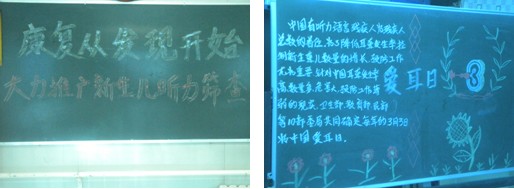 康复从发现开始
大力推广新生儿听力筛查
中国有听力语言残疾人居残疾人
总数的首位,为了降低耳聋发生率,控
制新生聋儿数量的增长,预防工作
尤为重要 针对中国耳聋发生
高数量多,危害大,预防工作薄
弱的现实,卫生部,教育部,民政部
等10部委局共同确定每年的3月3日
为全国爱耳日。
爱耳日
3